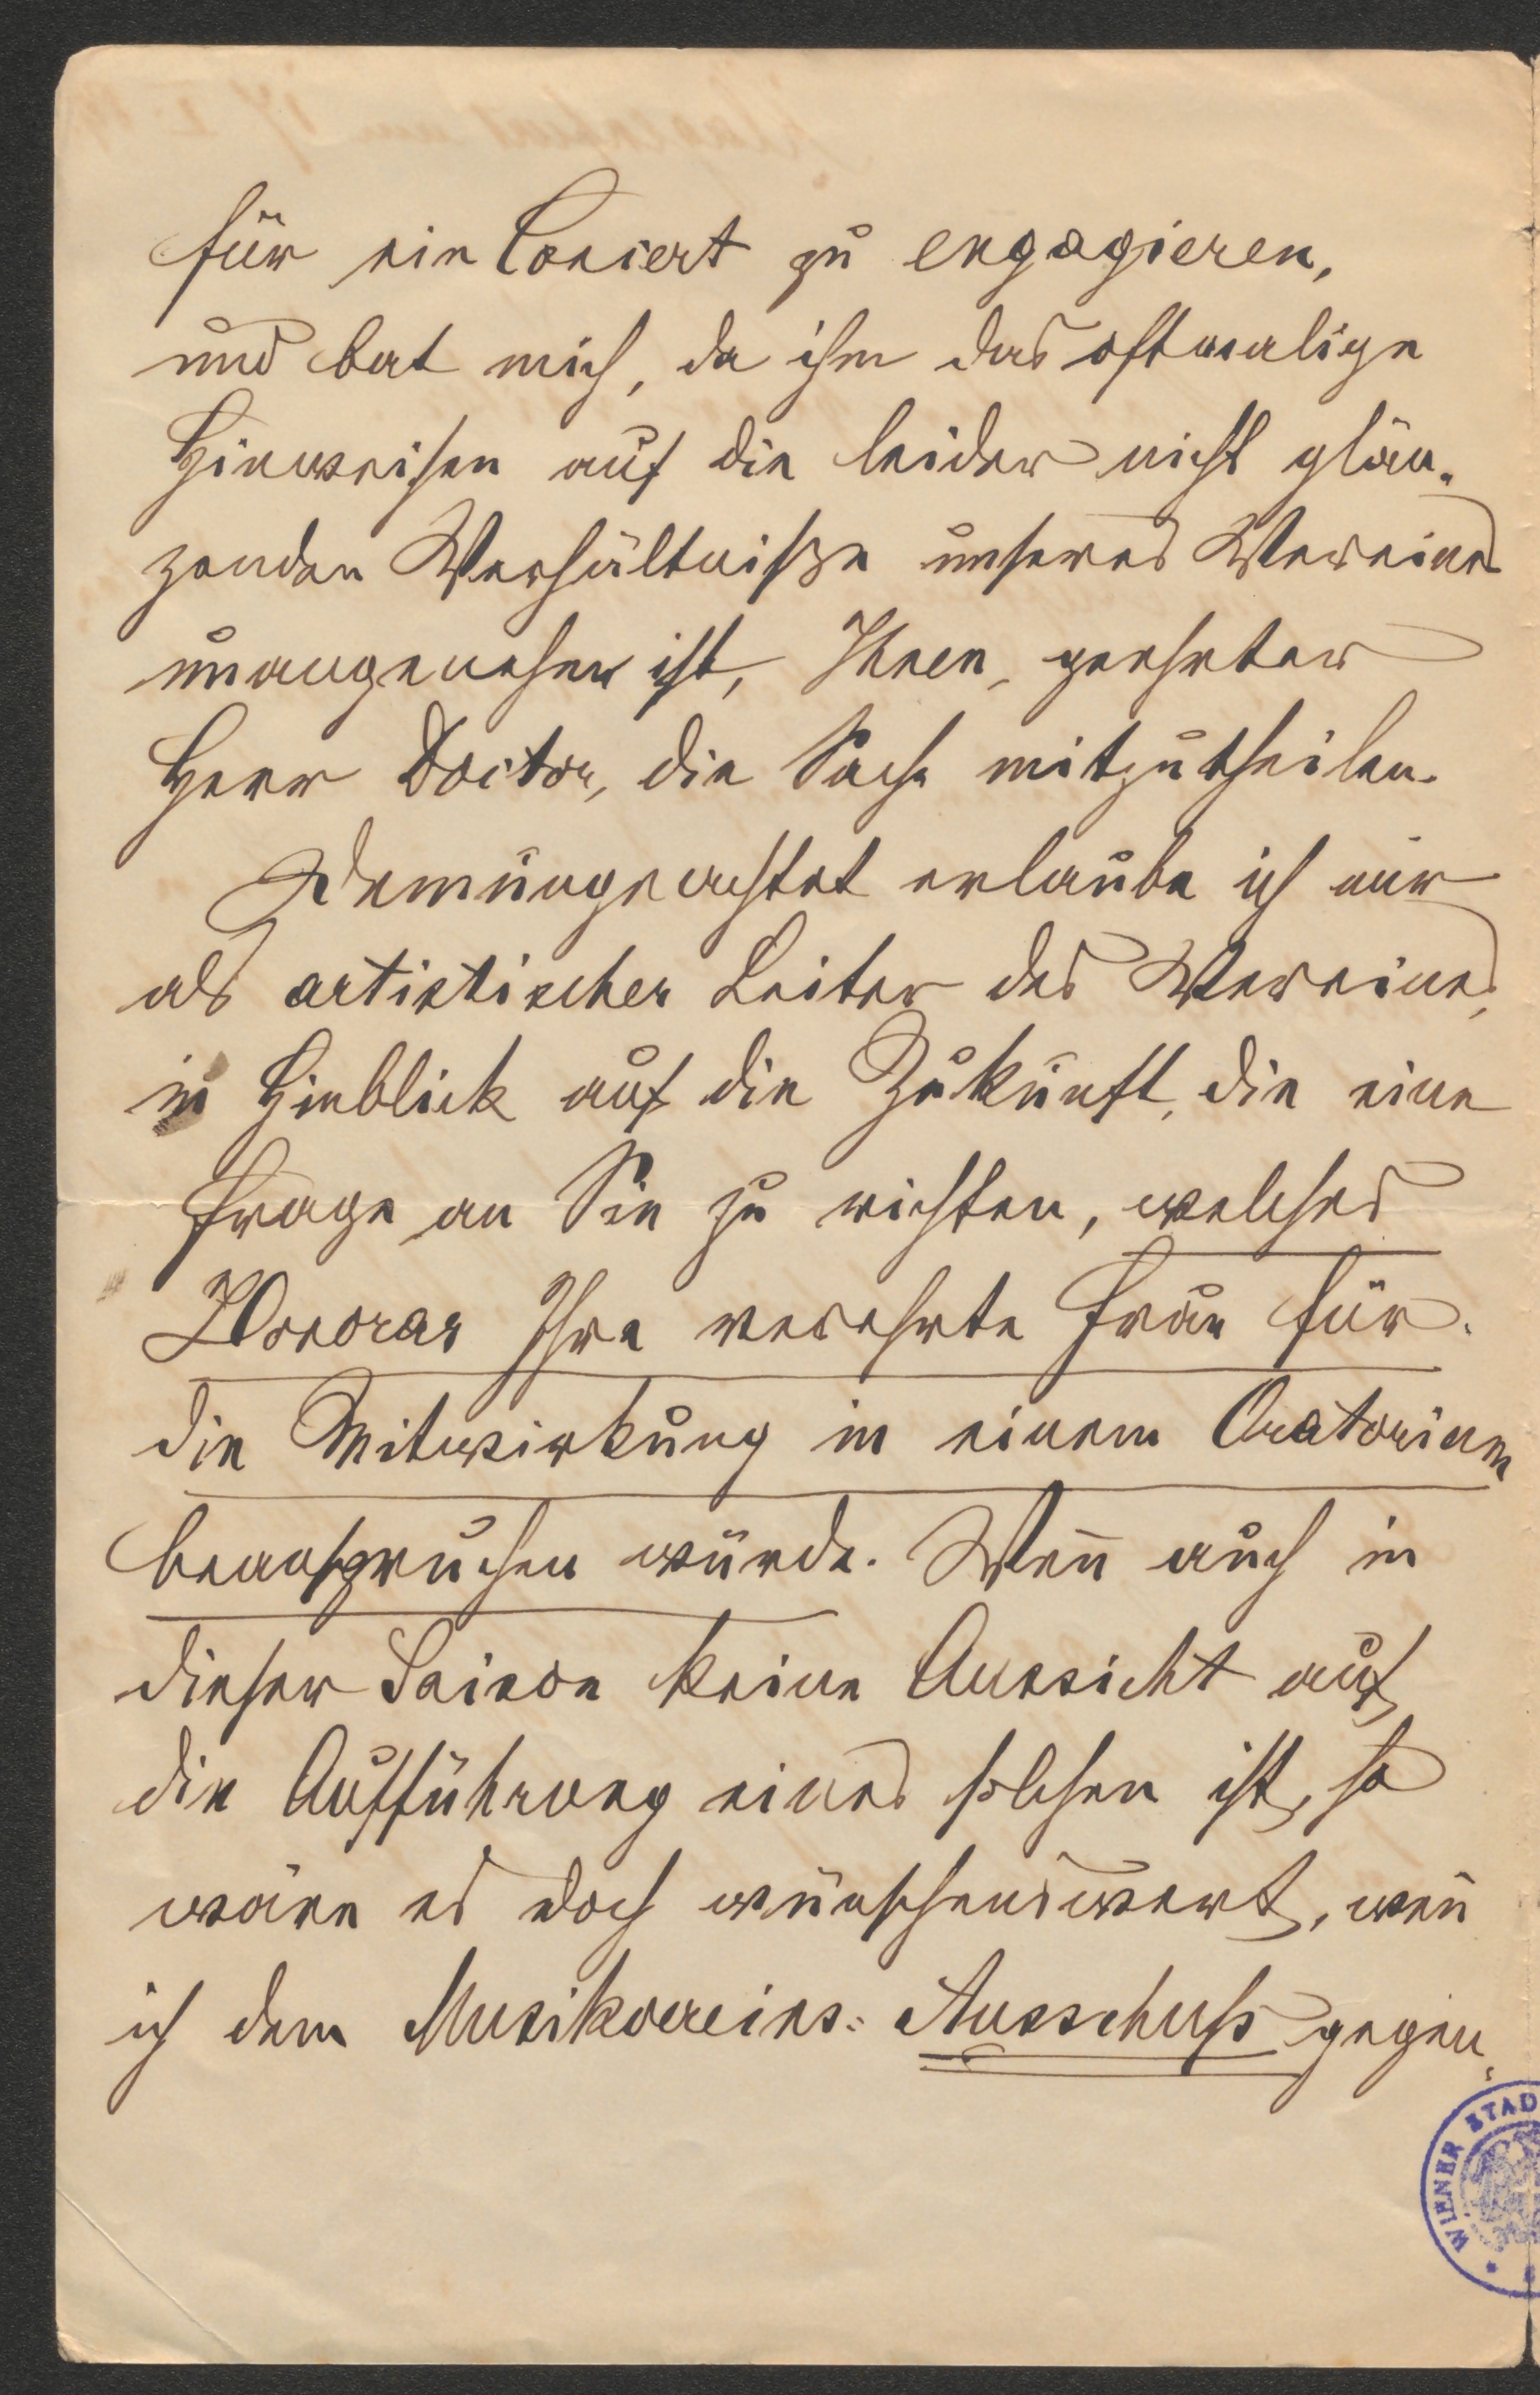 für ein Concert zu engagieren,
und bat mich, da ihm das oftmalige
Hinweisen auf die leider nicht glän-
zenden Verhältniße unseres Vereines
unangenehm ist, Ihnen, geehrter
Herr Doctor, die Sache mitzutheilen.
Demungeachtet erlaube ich mir
als artistischer Leiter des Vereines,
in Hinblick auf die Zukunft, die eine
Frage an Sie zu richten, welches
Honorar Ihre verehrte Frau für
die Mitwirkung in einem Oratorium
beanspruchen würde. Wen̄ auch in
dieser Saison keine Aussicht auf
die Aufführung eines solchen ist, so
wäre es doch wünschenswert, wen̄
ich dem Musikvereins-Ausschuß gegen-
WIENER STAD